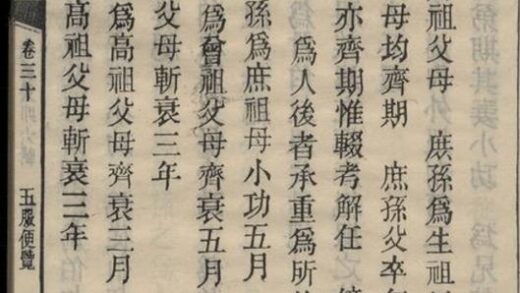 祖父母　庶孫爲生祖
母均齊期　庶孫父卒
亦齊期惟輟考解任
爲人後者承重爲所
孫爲庶祖母小功五月
爲曾祖父母齊衰五月
父母斬衰三年
爲高祖父母齊衰三月
高祖父母斬衰三年
卷三十
五服便覽